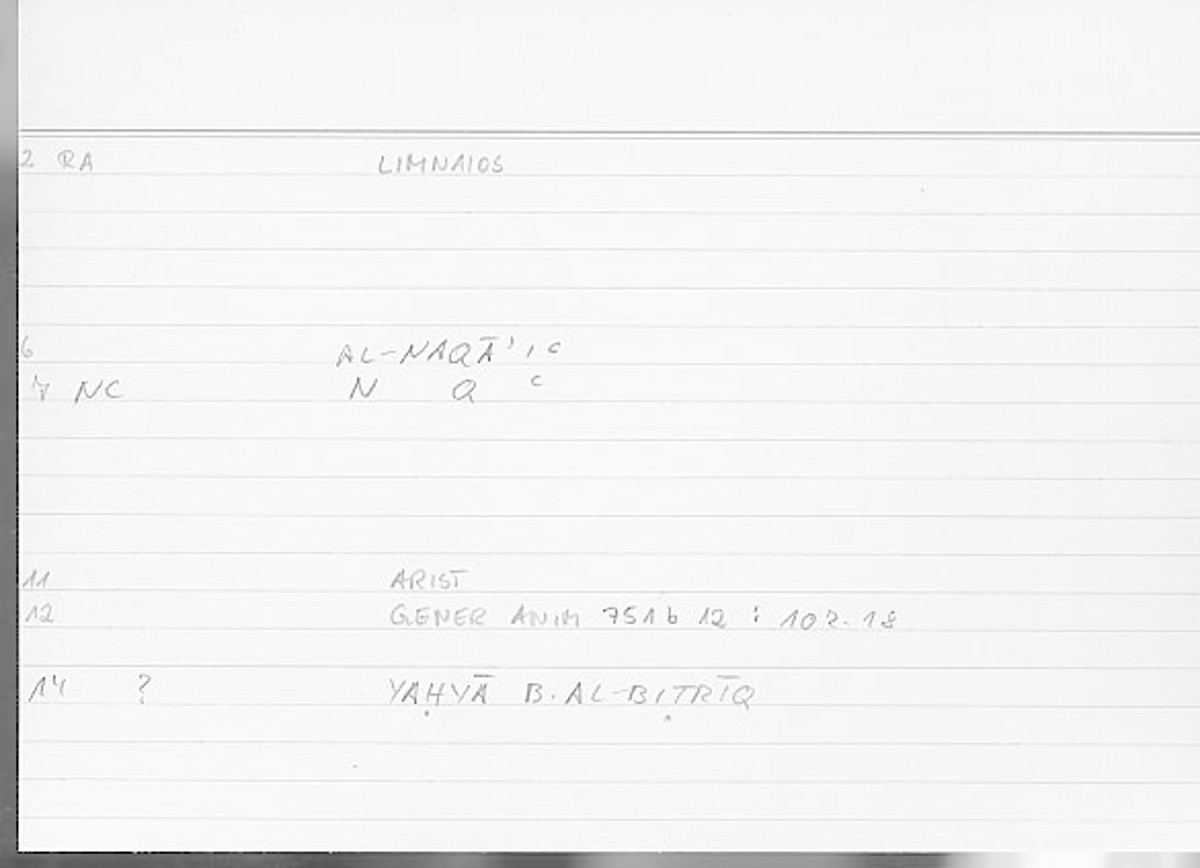 2 RA LIMNAIOS
6 AL-NAQĀʾIʿ
7 NC N Q ʿ
11 ARIST
12 GENER ANIM 751b 12 : 102.18
14 ? YAḤYĀ B. AL-BIṬRĪQ